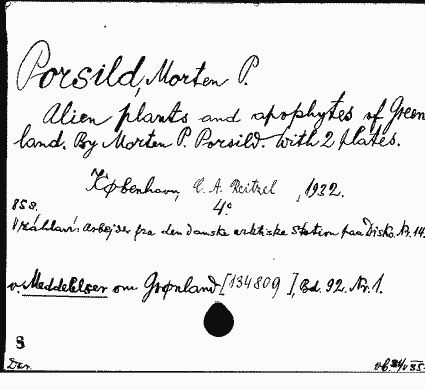 Porsild, Morten P.
Alien plants and apophytes of Green
land. By Morten P. Porsild. With 2 plates.
København, C. A. Reitzel, 1932.
4°
85 s.
V záhlaví: Arbejder fra den danske arktiske Station paa Disko. Nr. 14.
v. Meddelelser om Grønland [134809], Bd. 92. Nr. 1.
S
Dar.